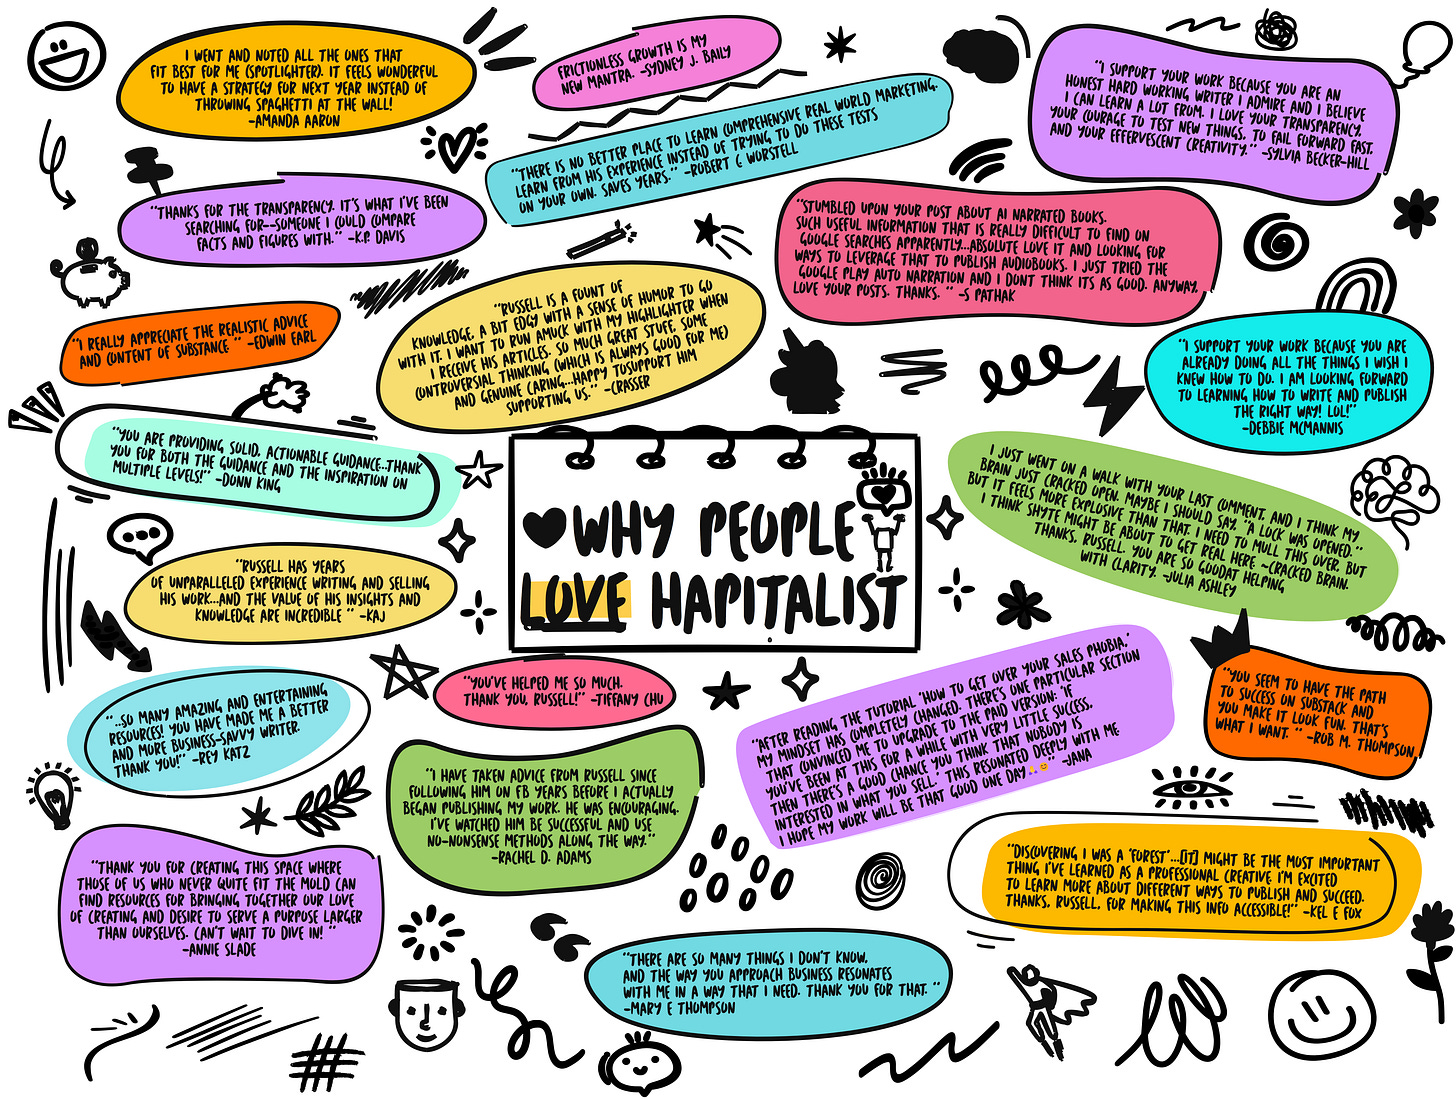 I WENT AND NOTED ALL THE ONES THAT
FIT BEST FOR ME (SPOTLIGHTER). IT FEELS WONDERFUL
TO HAVE A STRATEGY FOR NEXT YEAR INSTEAD OF
THROWING SPAGHETTI AT THE WALL!
-AMANDA AARON
FRICTIONLESS GROWTH IS MY
NEW MANTRA. -SYDNEY J. BAILY
"THERE IS NO BETTER PLACE TO LEARN COMPREHENSIVE REAL WORLD MARKETING.
LEARN FROM HIS EXPERIENCE INSTEAD OF TRYING TO DO THESE TESTS
ON YOUR OWN. SAVES YEARS." -ROBERT C WORSTELL
"I SUPPORT YOUR WORK BECAUSE YOU ARE AN
HONEST HARD WORKING WRITER I ADMIRE AND I BELIEVE
I CAN LEARN A LOT FROM. I LOVE YOUR TRANSPARENCY,
YOUR COURAGE TO TEST NEW THINGS, TO FAIL FORWARD FAST,
AND YOUR EFFERVESCENT CREATIVITY." -SYLVIA BECKER-HILL
"THANKS FOR THE TRANSPARENCY. IT'S WHAT I'VE BEEN
SEARCHING FOR--SOMEONE I COULD COMPARE
FACTS AND FIGURES WITH." -K.P. DAVIS
"STUMBLED UPON YOUR POST ABOUT AI NARRATED BOOKS.
SUCH USEFUL INFORMATION THAT IS REALLY DIFFICULT TO FIND ON
GOOGLE SEARCHES APPARENTLY...ABSOLUTE LOVE IT AND LOOKING FOR
WAYS TO LEVERAGE THAT TO PUBLISH AUDIOBOOKS. I JUST TRIED THE
GOOGLE PLAY AUTO NARRATION AND I DONT THINK ITS AS GOOD. ANYWAY,
LOVE YOUR POSTS. THANKS. " -S PATHAK
"RUSSELL IS A FOUNT OF
KNOWLEDGE, A BIT EDGY WITH A SENSE OF HUMOR TO GO
WITH IT. I WANT TO RUN AMUCK WITH MY HIGHLIGHTER WHEN
I RECEIVE HIS ARTICLES. SO MUCH GREAT STUFF, SOME
CONTROVERSIAL THINKING (WHICH IS ALWAYS GOOD FOR ME)
AND GENUINE CARING...HAPPY TOSUPPORT HIM
SUPPORTING US." -CRASSER
"I REALLY APPRECIATE THE REALISTIC ADVICE
AND CONTENT OF SUBSTANCE " -EDWIN EARL
"I SUPPORT YOUR WORK BECAUSE YOU ARE
ALREADY DOING ALL THE THINGS I WISH I
KNEW HOW TO DO. I AM LOOKING FORWARD
TO LEARNING HOW TO WRITE AND PUBLISH
THE RIGHT WAY! LOL!"
-DEBBIE MCMANNIS
"YOU ARE PROVIDING SOLID, ACTIONABLE GUIDANCE..THANK
YOU FOR BOTH THE GUIDANCE AND THE INSPIRATION ON
MULTIPLE LEVELS!" -DONN KING
I JUST WENT ON A WALK WITH YOUR LAST COMMENT, AND I THINK MY
BRAIN JUST CRACKED OPEN. MAYBE I SHOULD SAY, "A LOCK WAS OPENED."
BUT IT FEELS MORE EXPLOSIVE THAN THAT. I NEED TO MULL THIS OVER. BUT
I THINK SHYTE MIGHT BE ABOUT TO GET REAL HERE ~CRACKED BRAIN.
THANKS, RUSSELL. YOU ARE SO GOODAT HELPING
WITH CLARITY. -JULIA ASHLEY
WHY PEOPLE
LOVE HAPITALIST
"RUSSELL HAS YEARS
OF UNPARALLELED EXPERIENCE WRITING AND SELLING
HIS WORK...AND THE VALUE OF HIS INSIGHTS AND
KNOWLEDGE ARE INCREDIBLE " -KAJ
"...SO MANY AMAZING AND ENTERTAINING
RESOURCES! YOU HAVE MADE ME A BETTER
AND MORE BUSINESS-SAVVY WRITER.
THANK YOU!" -REY KATZ
"YOU'VE HELPED ME SO MUCH.
THANK YOU, RUSSELL!" -TIFFANY CHU
"AFTER READING THE TUTORIAL 'HOW TO GET OVER YOUR SALES PHOBIA,'
MY MINDSET HAS COMPLETELY CHANGED. THERE'S ONE PARTICULAR SECTION
THAT CONVINCED ME TO UPGRADE TO THE PAID VERSION: 'IF
YOU'VE BEEN AT THIS FOR A WHILE WITH VERY LITTLE SUCCESS,
THEN THERE'S A GOOD CHANCE YOU THINK THAT NOBODY IS
INTERESTED IN WHAT YOU SELL.' THIS RESONATED DEEPLY WITH ME
I HOPE MY WORK WILL BE THAT GOOD ONE DAY🙏😊" -JANA
"YOU SEEM TO HAVE THE PATH
TO SUCCESS ON SUBSTACK AND
YOU MAKE IT LOOK FUN. THAT'S
WHAT I WANT. " -ROB M. THOMPSON,
"I HAVE TAKEN ADVICE FROM RUSSELL SINCE
FOLLOWING HIM ON FB YEARS BEFORE I ACTUALLY
BEGAN PUBLISHING MY WORK. HE WAS ENCOURAGING.
I'VE WATCHED HIM BE SUCCESSFUL AND USE
NO-NONSENSE METHODS ALONG THE WAY."
-RACHEL D. ADAMS
"THANK YOU FOR CREATING THIS SPACE WHERE
THOSE OF US WHO NEVER QUITE FIT THE MOLD CAN
FIND RESOURCES FOR BRINGING TOGETHER OUR LOVE
OF CREATING AND DESIRE TO SERVE A PURPOSE LARGER
THAN OURSELVES. CAN'T WAIT TO DIVE IN! "
-ANNIE SLADE
"DISCOVERING I WAS A 'FOREST'...[IT] MIGHT BE THE MOST IMPORTANT
THING I'VE LEARNED AS A PROFESSIONAL CREATIVE I'M EXCITED
TO LEARN MORE ABOUT DIFFERENT WAYS TO PUBLISH AND SUCCEED.
THANKS, RUSSELL, FOR MAKING THIS INFO ACCESSIBLE!" -KEL E FOX
"THERE ARE SO MANY THINGS I DON'T KNOW,
AND THE WAY YOU APPROACH BUSINESS RESONATES
WITH ME IN A WAY THAT I NEED. THANK YOU FOR THAT. "
-MARY E THOMPSON